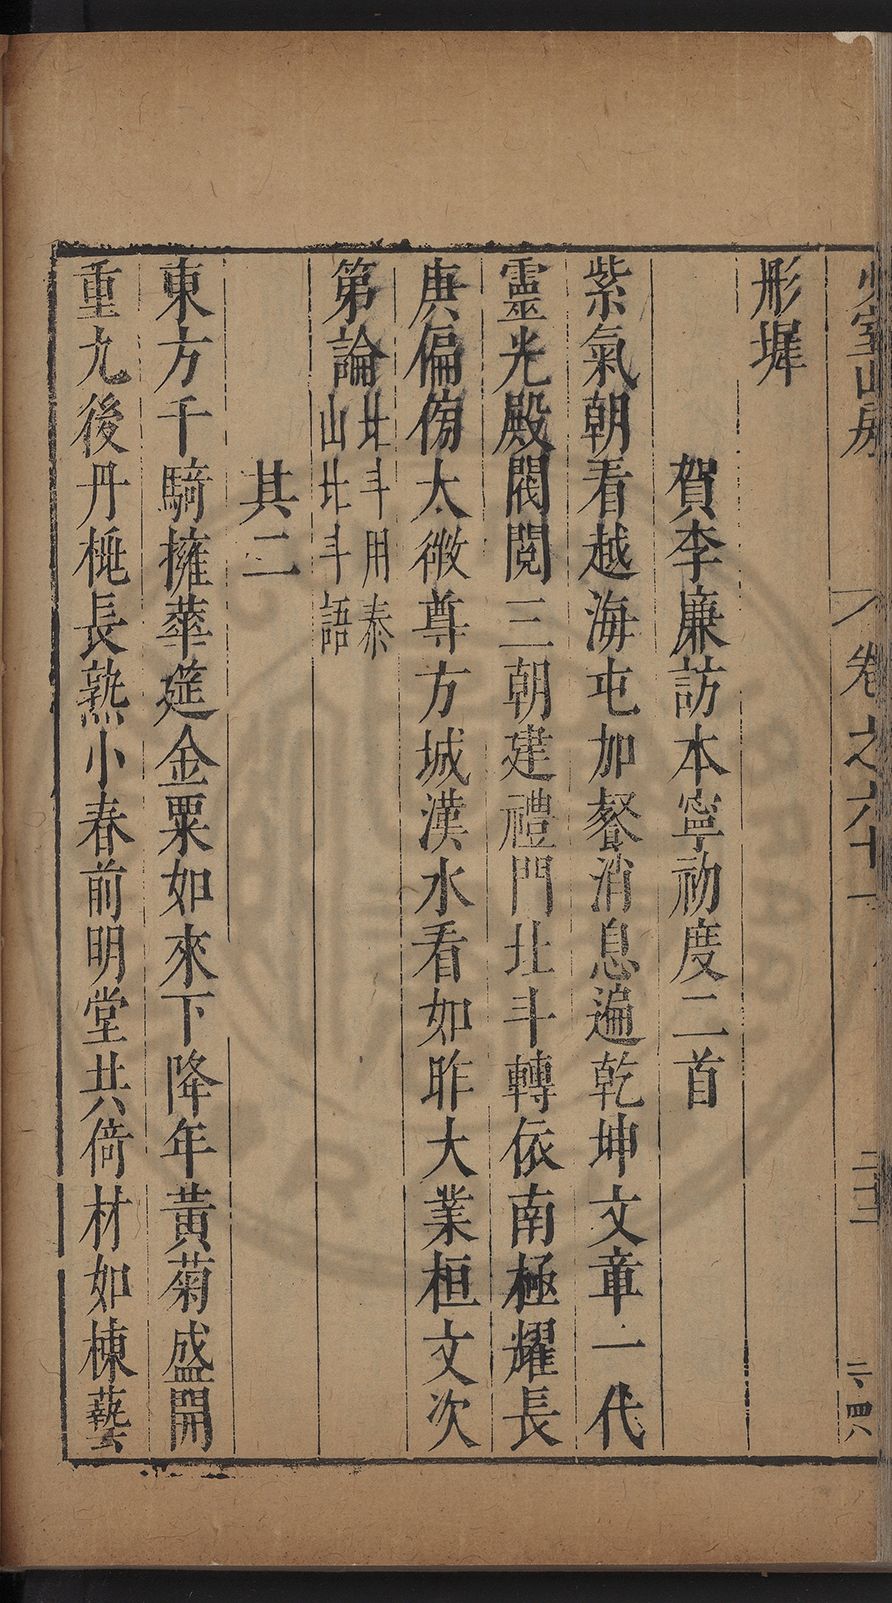 少室山房
卷之六十一
二十二
二、四八
彤墀
賀李廉訪本寧初度二首
紫氣朝看越海屯加餐消息遍乾坤文章一代
靈光殿閥閱三朝建禮門北斗轉依南極耀長
庚偏傍太微尊方城漢水看如昨大業桓文次
第論北斗用泰
山北斗語
其二
東方千騎擁華筵金粟如來下降年黃菊盛開
重九後丹桃長熟小春前明堂共倚材如棟藝